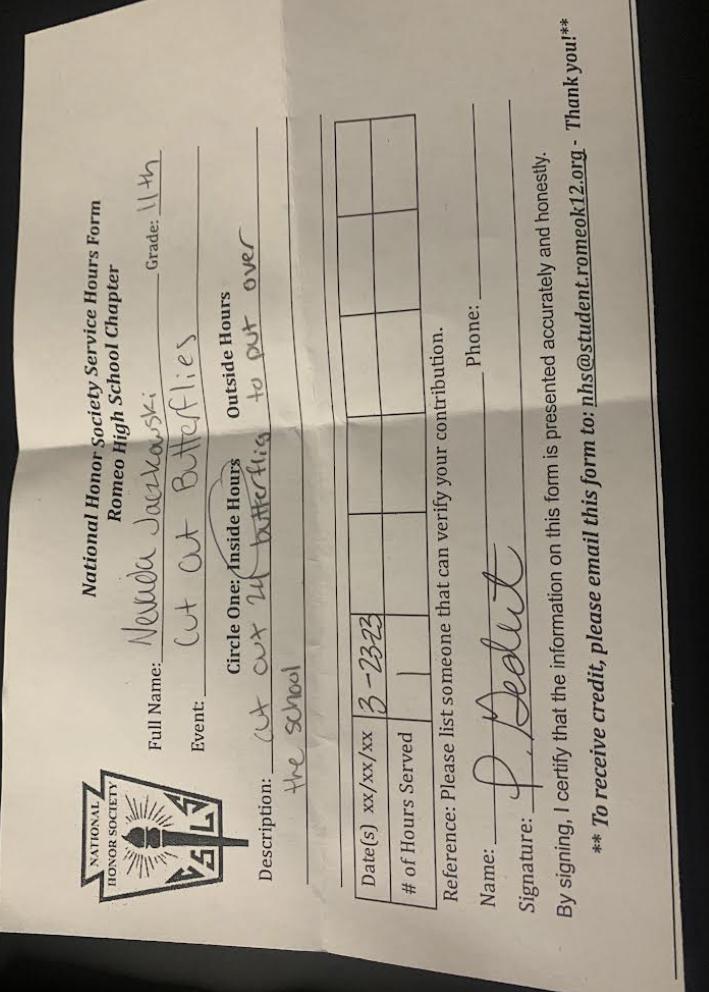 National Honor Society Service Hours Form
Romeo High School Chapter
NATIONAL
HONOR SOCIETY
C S L S
Full Name: Nevada Jaczkowski Grade: 11th
Event: Cut out Butterflies
Circle One: Inside Hours Outside Hours
Description: cut out 24 butterflig to put over
the school
Date(s) xx/xx/xx 3-23-23
# of Hours Served 1
Reference: Please list someone that can verify your contribution.
Name: Phone:
Signature: P.
By signing, I certify that the information on this form is presented accurately and honestly.
** To receive credit, please email this form to: nhs@student.romeok12.org - Thank you!**